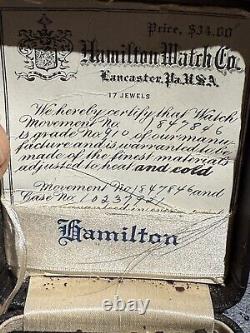 Price, $34.00
Hamilton Watch Co.
Lancaster, Pa. U.S.A.
17 JEWELS
We hereby certify that Watch
Movement No. 1847846
is grade No. 910 of our manu-
facture and is warranted to be
made of the finest materials
adjusted to heat and cold
Movement No 1847846 and
Case No. 1023791
Hamilton